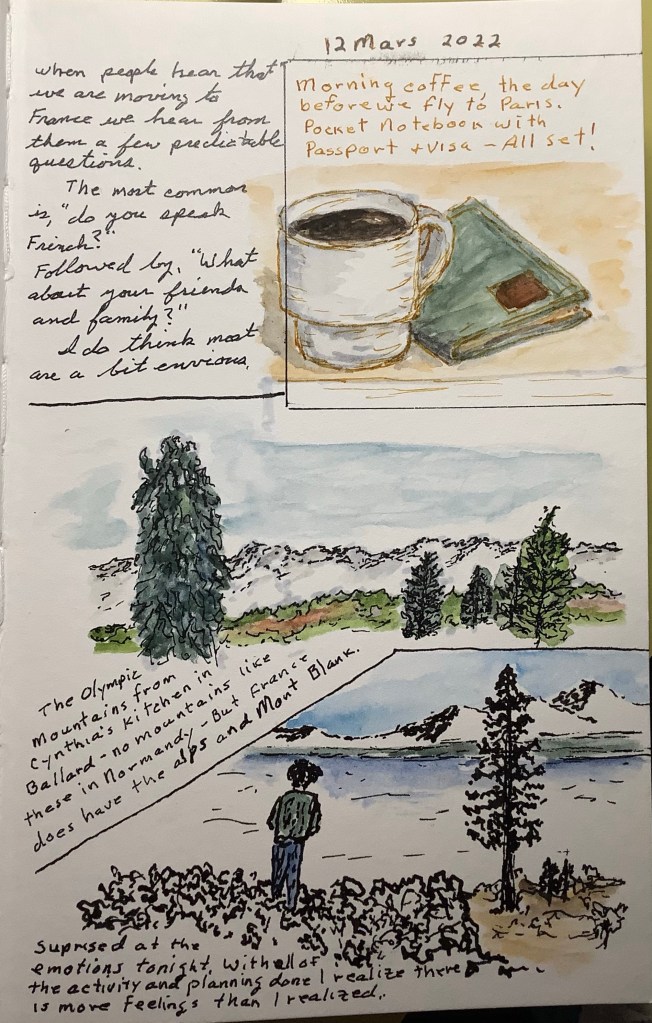 12 Mars 2022
When people hear that
we are moving to
France we hear from
them a few predictable
questions.
The most common
is, "do you speak
French?"
Followed by, "What
about your friends
and family?"
I do think most
are a bit envious.
Morning coffee, the day
before we fly to Paris.
Pocket Notebook with
Passport + Visa - All set!
The Olympic
Mountains from
Cynthia's kitchen in
Ballard - no mountains like
these in Normandy - But France
does have the alps and Mont Blank.
Suprised at the
emotions tonight. With all of
the activity and planning done I realize there
is more feelings than I realized.